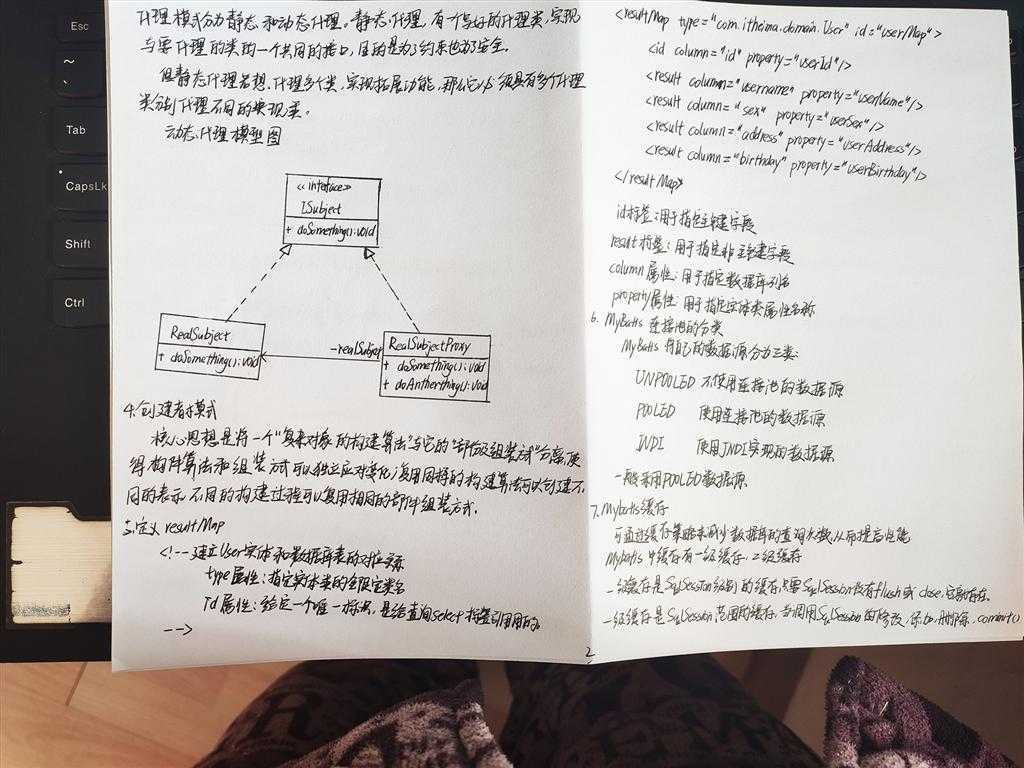 Esc
~
Tab
CapsLk
Shift
Ctrl
代理模式分为静态和动态代理。静态代理,有一个写好的代理类,实现
与要代理的类的一个共同的接口,目的是为了约束也为了安全。
但静态代理若想代理多个类,实现拓展功能,那么它必须具有多个代理
类分别代理不同的实现类。
动态代理模型图
<<interface>>
ISubject
+ doSomething():void
RealSubject
+ doSomething():void
-realSubject
RealSubjectProxy
+ doSomething():void
+ doAntherthing():void
4.创建者模式
核心思想是将一个"复杂对象的构建算法"与它的"部件及组装方式"分离,使
得构件算法和组装方式可以独立应对变化;复用同样的构建算法可以创建不
同的表示,不同的构建过程可以复用相同的部件组装方式.
5.定义 resultMap
<!-- 建立User实体和数据库表的对应关系
type属性:指定实体类的全限定类名
id属性:给定一个唯一标识,是给查询select标签引用用的。
-->
<resultMap type="com.itheima.domain.User" id="userMap">
<id column="id" property="userId"/>
<result column="username" property="userName"/>
<result column="sex" property="userSex"/>
<result column="address" property="userAddress"/>
<result column="birthday" property="userBirthday"/>
</resultMap>
id标签:用于指定主键字段
result标签:用于指定非主键字段
column属性:用于指定数据库列名
property属性:用于指定实体类属性名称
6. MyBatis 连接池的分类
MyBatis 将自己的数据源分为三类:
UNPOOLED 不使用连接池的数据源
POOLED 使用连接池的数据源
JNDI 使用JNDI实现的数据源
一般采用POOLED数据源
7. Mybatis缓存
可通过缓存策略来减少数据库的查询次数,从而提高性能
Mybatis 中缓存有一级缓存,二级缓存
一级缓存是SqlSession级别的缓存,只要SqlSession没有flush或close,它就存在.
一级缓存是SqlSession范围的缓存,当调用SqlSession的修改,添加,删除,commit()
2